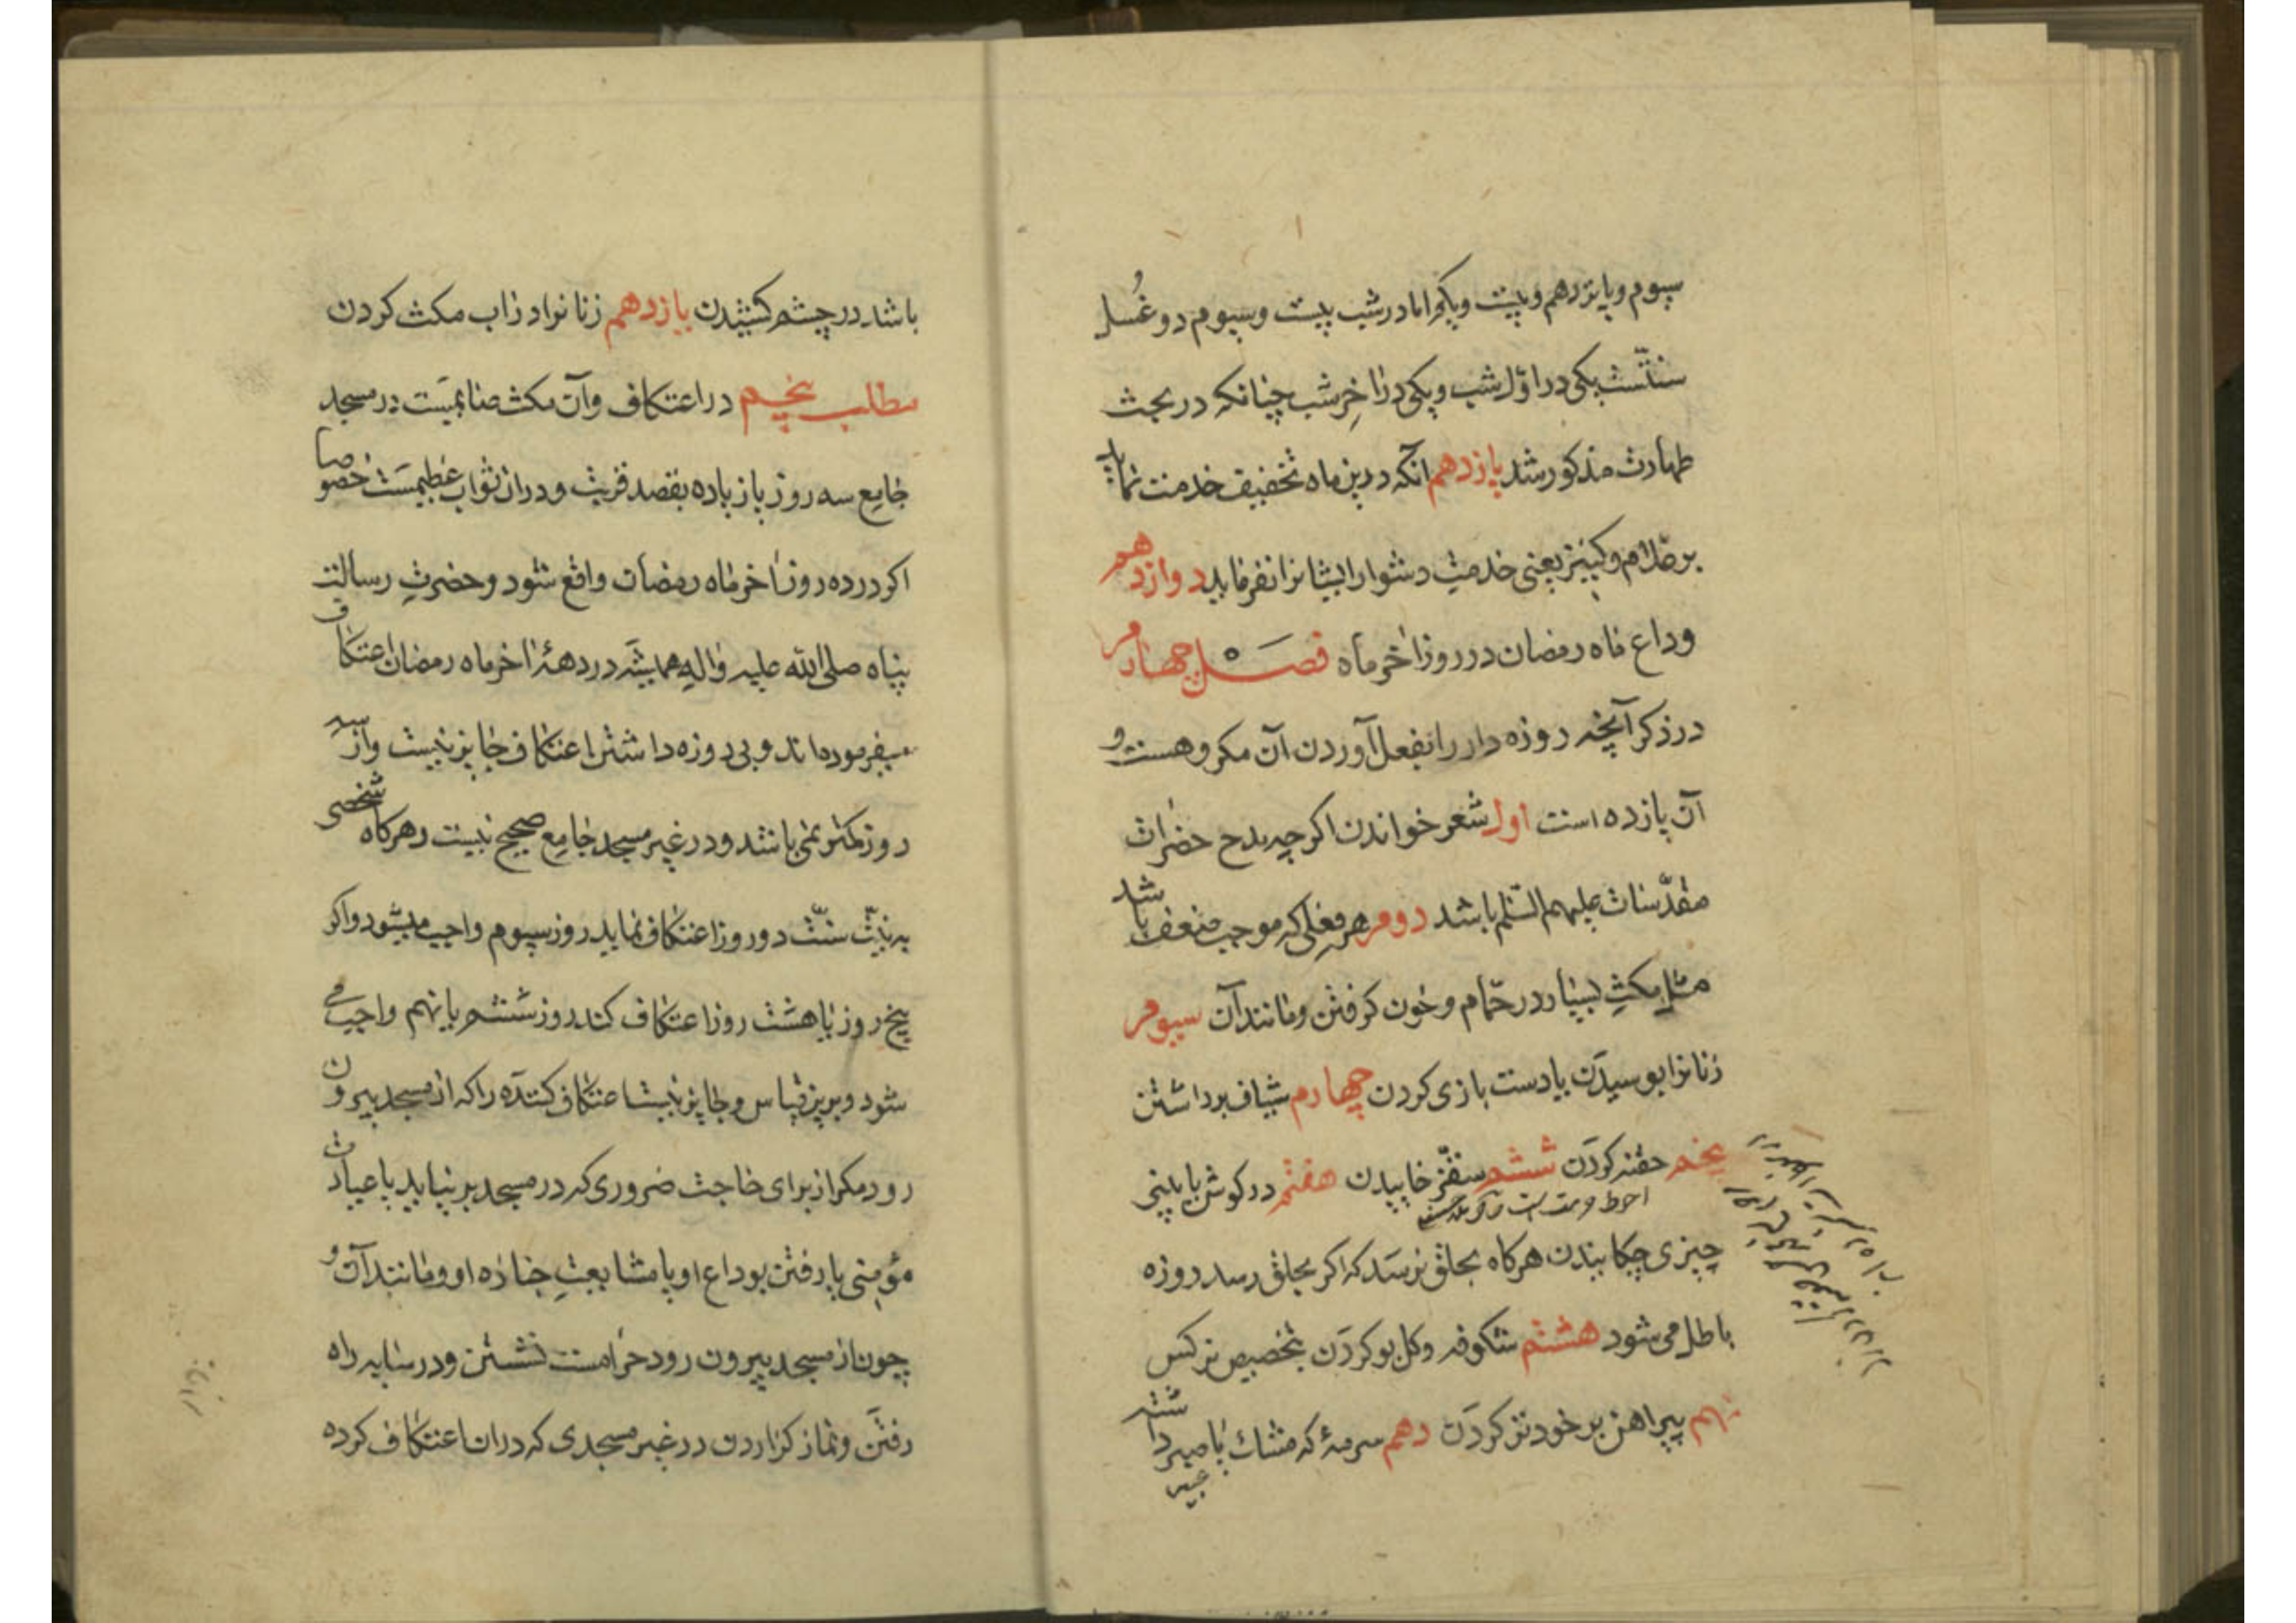 سیوم و پانزدهم و بیست و یکم اما در شب بیست و سیوم دو غُسل
سنّتست یکی در اوّل شب و یکی در اخِر شب چنانکه در بحث
طهارت مذکور شد یازدهم آنکه درین ماه تخفیف خدمت نماید
بر غلام و کنیز یعنی خدمت دشوار ایشانرا نفرماید دوازدهم
وداع ماه رمضان در روز اخر ماه فصل چهارم
در ذکر آنچه روزه دار را بفعل آوردن آن مکروهست و
آن یازده است اول شعر خواندن اکر چه بمدح حضرات
مقدّسات علیهم السّلم باشد دوم هر فعلی که موجب ضعف باشد
مثل مکثِ بسیار در حمّام و خون کرفتن و مانند آن سیوم
زنانرا بوسیدن یا دست بازی کردن چهارم شیاف برداشتن
پنجم حقنه کردن ششم سقّز خاییدن هفتم در کوش یا بینی
چیزی چکانیدن هرکاه بحلق نرسد که اکر بحلق رسد روزه
باطل می شود هشتم شکوفه و کل بو کردن بتخصیص نرکس
نهم پیراهن بر خود تر کردن دهم سرمهٔ که مشک یا صبر داشته
باشد در چشم کشیدن یازدهم زنانرا در آب مکث کردن
مطلب پنجم در اعتکاف و آن مکث صایمیست در مسجد
جامع سه روز یا زیاده بقصد قربت و در ان ثواب عظیمست خصوصا
اکر در ده روز اخر ماه رمضان واقع شود و حضرتِ رسالت
پناه صلی الله علیه و اله همیشه در دههٔ اخر ماه رمضان اعتکاف
میفرموده اند و بی روزه داشتن اعتکاف جایز نیست و از سه
روز کمتر نمی باشد و در غیر مسجد جامع صحیح نیست و هرکاه شخصی
به نیّت سنّت دو روز اعتکاف نماید روز سیوم واجب میشود و اکر
پنج روز یا هشت روز اعتکاف کند روز ششم یا نهم واجب می
شود و برین قیاس و جایز نیست اعتکاف کننده را که از مسجد بیرون
رود مکر از برای حاجت ضروری که در مسجد بر نیاید یا عیادت
مؤمنی یا رفتن بوداع او یا مشایعتِ جنازه او و مانند آن و
چون از مسجد بیرون رود حرامست نشستن و در سایه راه
رفتن و نماز کزاردن در غیر مسجدی که در ان اعتکاف کرده